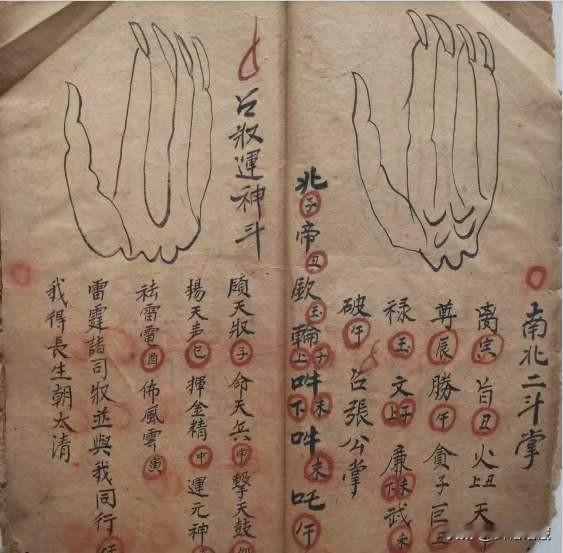 南北二斗掌
离寅旨丑火上丑天
尊辰勝午貪子巨丑
禄玉文上子廉下未武未
破午
召張公掌
北子帝丑欧玉輪上子吽下未吽未吒午
召収運神斗
頋天収子命天兵申擊天鼓
揚天声巳揮金精申運元神
祛雷電酉佈風雲寅
雷霆諸司収並與我同行
我得長生朝太清